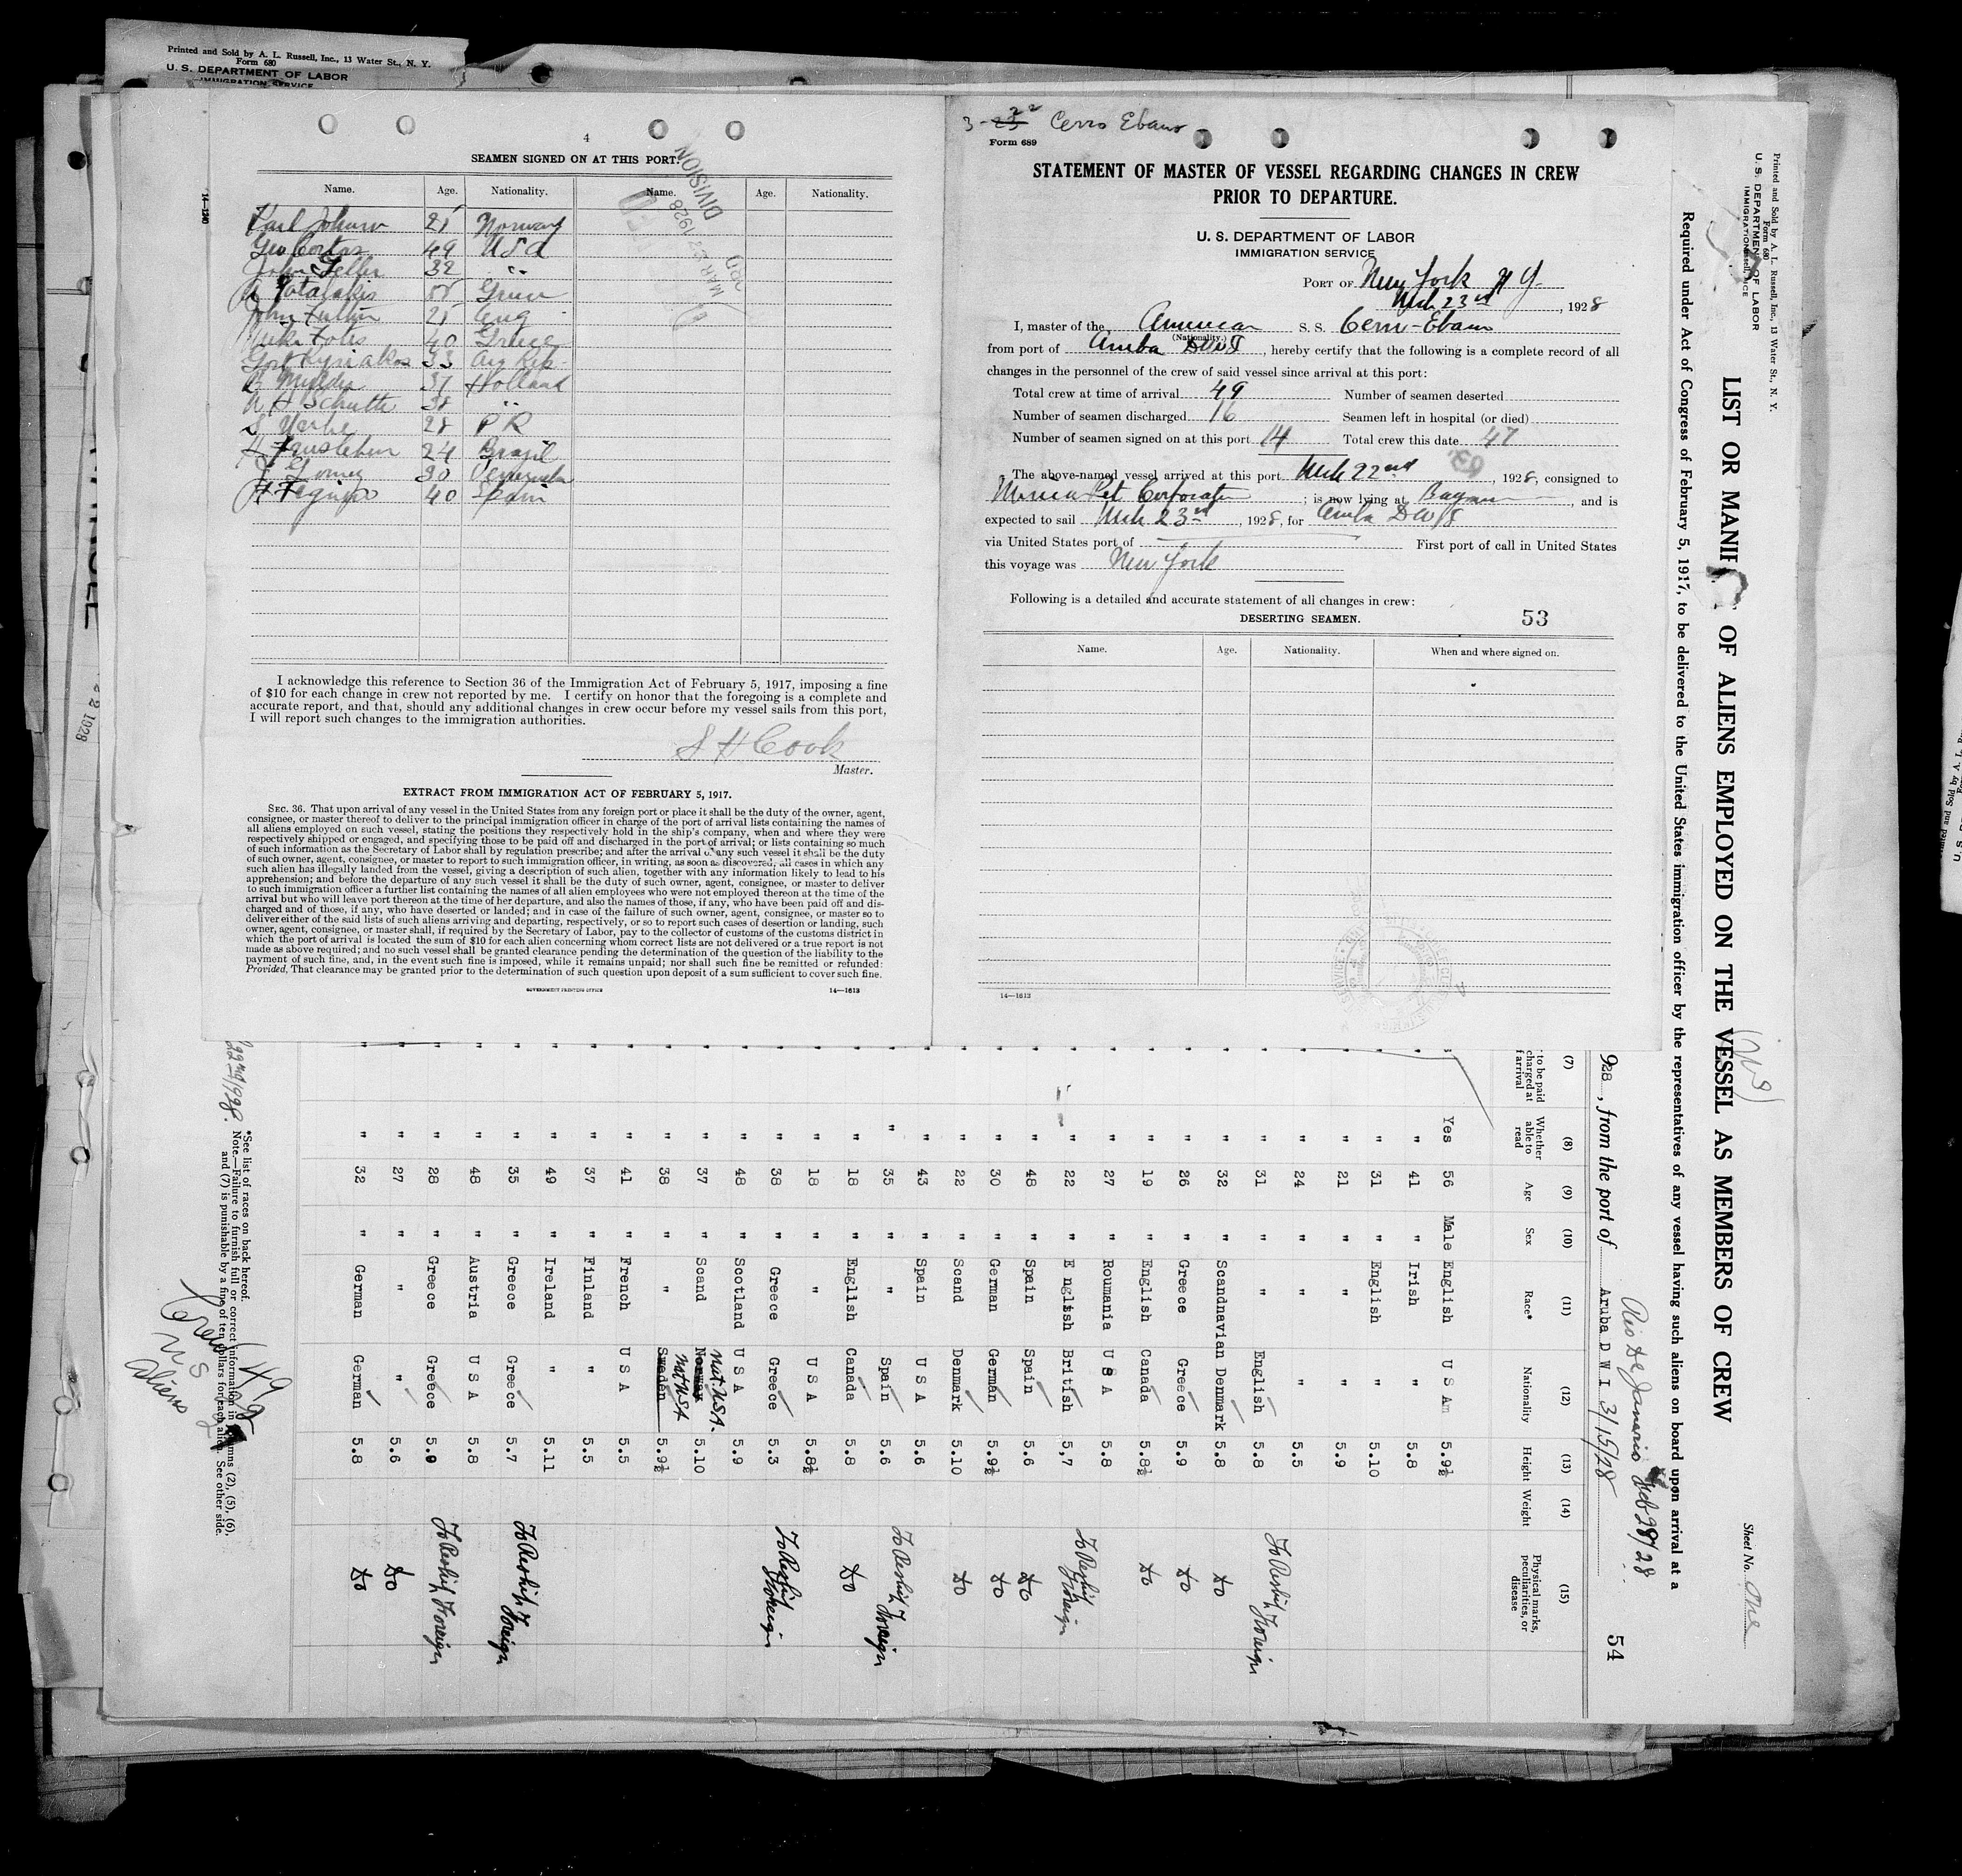 Printed and Sold by A. L. Russell, Inc., 13 Water St., N. Y.
Form 680
U. S. DEPARTMENT OF LABOR
IMMIGRATION SERVICE
4
SEAMEN SIGNED ON AT THIS PORT.
Name. Age. Nationality. Name. Age. Nationality.
Karl Johnson 25 Norway
Geo Cortas 49 USA
John Feller 32 "
25 Eng
40 Greece
Kyriakos 33 Arg Rep.
B Mulder 37 Holland
A H Schutte 38 "
28 PR
24 Brazil
J Gomez 30 Venezuela
40 Spain
DIVISION
MAR 23 1928
I acknowledge this reference to Section 36 of the Immigration Act of February 5, 1917, imposing a fine
of $10 for each change in crew not reported by me. I certify on honor that the foregoing is a complete and
accurate report, and that, should any additional changes in crew occur before my vessel sails from this port,
I will report such changes to the immigration authorities.
S H Cook
Master.
EXTRACT FROM IMMIGRATION ACT OF FEBRUARY 5, 1917.
SEC. 36. That upon arrival of any vessel in the United States from any foreign port or place it shall be the duty of the owner, agent,
consignee, or master thereof to deliver to the principal immigration officer in charge of the port of arrival lists containing the names of
all aliens employed on such vessel, stating the positions they respectively hold in the ship's company, when and where they were
respectively shipped or engaged, and specifying those to be paid off and discharged in the port of arrival; or lists containing so much
of such information as the Secretary of Labor shall by regulation prescribe; and after the arrival of any such vessel it shall be the duty
of such owner, agent, consignee, or master to report to such immigration officer, in writing, as soon as discovered, all cases in which any
such alien has illegally landed from the vessel, giving a description of such alien, together with any information likely to lead to his
apprehension; and before the departure of any such vessel it shall be the duty of such owner, agent, consignee, or master to deliver
to such immigration officer a further list containing the names of all alien employees who were not employed thereon at the time of the
arrival but who will leave port thereon at the time of her departure, and also the names of those, if any, who have been paid off and dis-
charged and of those, if any, who have deserted or landed; and in case of the failure of such owner, agent, consignee, or master so to
deliver either of the said lists of such aliens arriving and departing, respectively, or so to report such cases of desertion or landing, such
owner, agent, consignee, or master shall, if required by the Secretary of Labor, pay to the collector of customs of the customs district in
which the port of arrival is located the sum of $10 for each alien concerning whom correct lists are not delivered or a true report is not
made as above required; and no such vessel shall be granted clearance pending the determination of the question of the liability to the
payment of such fine, and, in the event such fine is imposed, while it remains unpaid; nor shall such fine be remitted or refunded:
Provided, That clearance may be granted prior to the determination of such question upon deposit of a sum sufficient to cover such fine.
GOVERNMENT PRINTING OFFICE 14—1613
14—1240
3-22 Cerro Ebano
Form 689
STATEMENT OF MASTER OF VESSEL REGARDING CHANGES IN CREW
PRIOR TO DEPARTURE.
U. S. DEPARTMENT OF LABOR
IMMIGRATION SERVICE
PORT OF New York N Y
Mch 23rd, 1928
I, master of the American S. S. Cerro-Ebano
(Nationality.)
from port of Aruba DWI, hereby certify that the following is a complete record of all
changes in the personnel of the crew of said vessel since arrival at this port:
Total crew at time of arrival 49 Number of seamen deserted
Number of seamen discharged 16 Seamen left in hospital (or died)
Number of seamen signed on at this port 14 Total crew this date 47
The above-named vessel arrived at this port Mch 22nd, 1928, consigned to
Mexican Pet Corporation; is now lying at Bayonne, and is
expected to sail Mch 23rd, 1928, for Aruba DWI
via United States port of First port of call in United States
this voyage was New York
Following is a detailed and accurate statement of all changes in crew:
DESERTING SEAMEN. 53
Name. Age. Nationality. When and where signed on.
14—1613
Printed and Sold by A. L. Russell, Inc., 13 Water St., N. Y.
Form 680
U. S. DEPARTMENT OF LABOR
IMMIGRATION SERVICE
Sheet No. One
LIST OR MANIF OF ALIENS EMPLOYED ON THE VESSEL AS MEMBERS OF CREW
Required under Act of Congress of February 5, 1917, to be delivered to the United States immigration officer by the representatives of any vessel having such aliens on board upon arrival at a
Rio de Janeiro Feb 29/28
928, from the port of Aruba D W I 3/15/28 54
(7) (8) (9) (10) (11) (12) (13) (14) (15)
to be paid charged at arrival Whether able to read Age Sex Race* Nationality Height Weight Physical marks, peculiarities, or disease
Yes 56 Male English U S Am 5.9½
" 41 " Irish " 5.8
" 31 " English " 5.10
" 21 " " " 5.9
" 24 " " " 5.5
" 31 " " English 5.8 To Reship Foreign
" 32 " Scandnavian Denmark 5.8 do
" 26 " Greece Greece 5.9 do
" 19 " English Canada 5.8½ do
" 27 " Roumania U S A 5.8
" 22 " E nglish British 5,7 To Reship Foreign
" 48 " Spain Spain 5.6 do
" 30 " German German 5.9½ do
" 22 " Scand Denmark 5.10 do
" 43 " Spain U S A 5.6
" 35 " " Spain 5.6 To Reship Foreign
" 18 " English Canada 5.8 do
" 18 " " U S A 5.8½
" 38 " Greece Greece 5.3 To Reship Foreign
" 48 " Scotland U S A 5.9
" 37 " Scand Norway Nat. USA. 5.10
" 38 " " Sweden Nat USA 5.9½
" 41 " French U S A 5.5
" 37 " Finland " 5.5
" 49 " Ireland " 5.11
" 35 " Greece Greece 5.7 To Reship Foreign
" 48 " Austria U S A 5.8
" 28 " Greece Greece 5.9 To Reship Foreign
" 27 " " " 5.6 do
" 32 " German German 5.8 do
*See list of races on back hereof.
Note.—Failure to furnish full or correct information in columns (2), (5), (6),
and (7) is punishable by a fine of ten dollars for each alien. See other side.
22nd/1928.
Crew 49
US
Aliens
2 1928